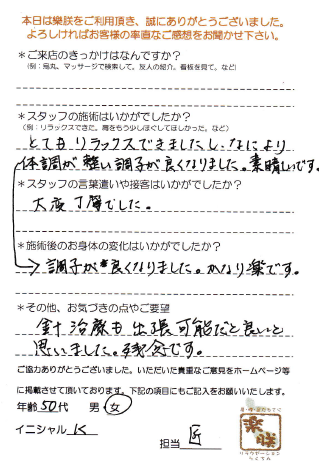 本日は樂朕をご利用頂き、誠にありがとうございました。
よろしければお客様の率直なご感想をお聞かせ下さい。
＊ご来店のきっかけはなんですか？
（例：烏丸、マッサージで検索して。友人の紹介。看板を見て。など）
＊スタッフの施術はいかがでしたか？
（例：リラックスできた。肩をもう少しほぐしてほしかった。など）
とてもリラックスできましたし、なにより
体調が 難い 調子が良くなりました。素晴しいです。
＊スタッフの言葉遣いや接客はいかがでしたか？
大変丁寧でした。
＊施術後のお身体の変化はいかがでしたか？
調子が良くなりました。かなり楽です。
＊その他、お気づきの点やご要望
針治療も出張可能だと良いと
思いました。残念です。
ご協力ありがとうございました。いただいた貴重なご意見をホームページ等
に掲載させて頂いております。下記の項目にもご記入をお願いいたします。
年齢 50代 男・女
イニシャル K
担当 匠
樂朕
リラクゼーション